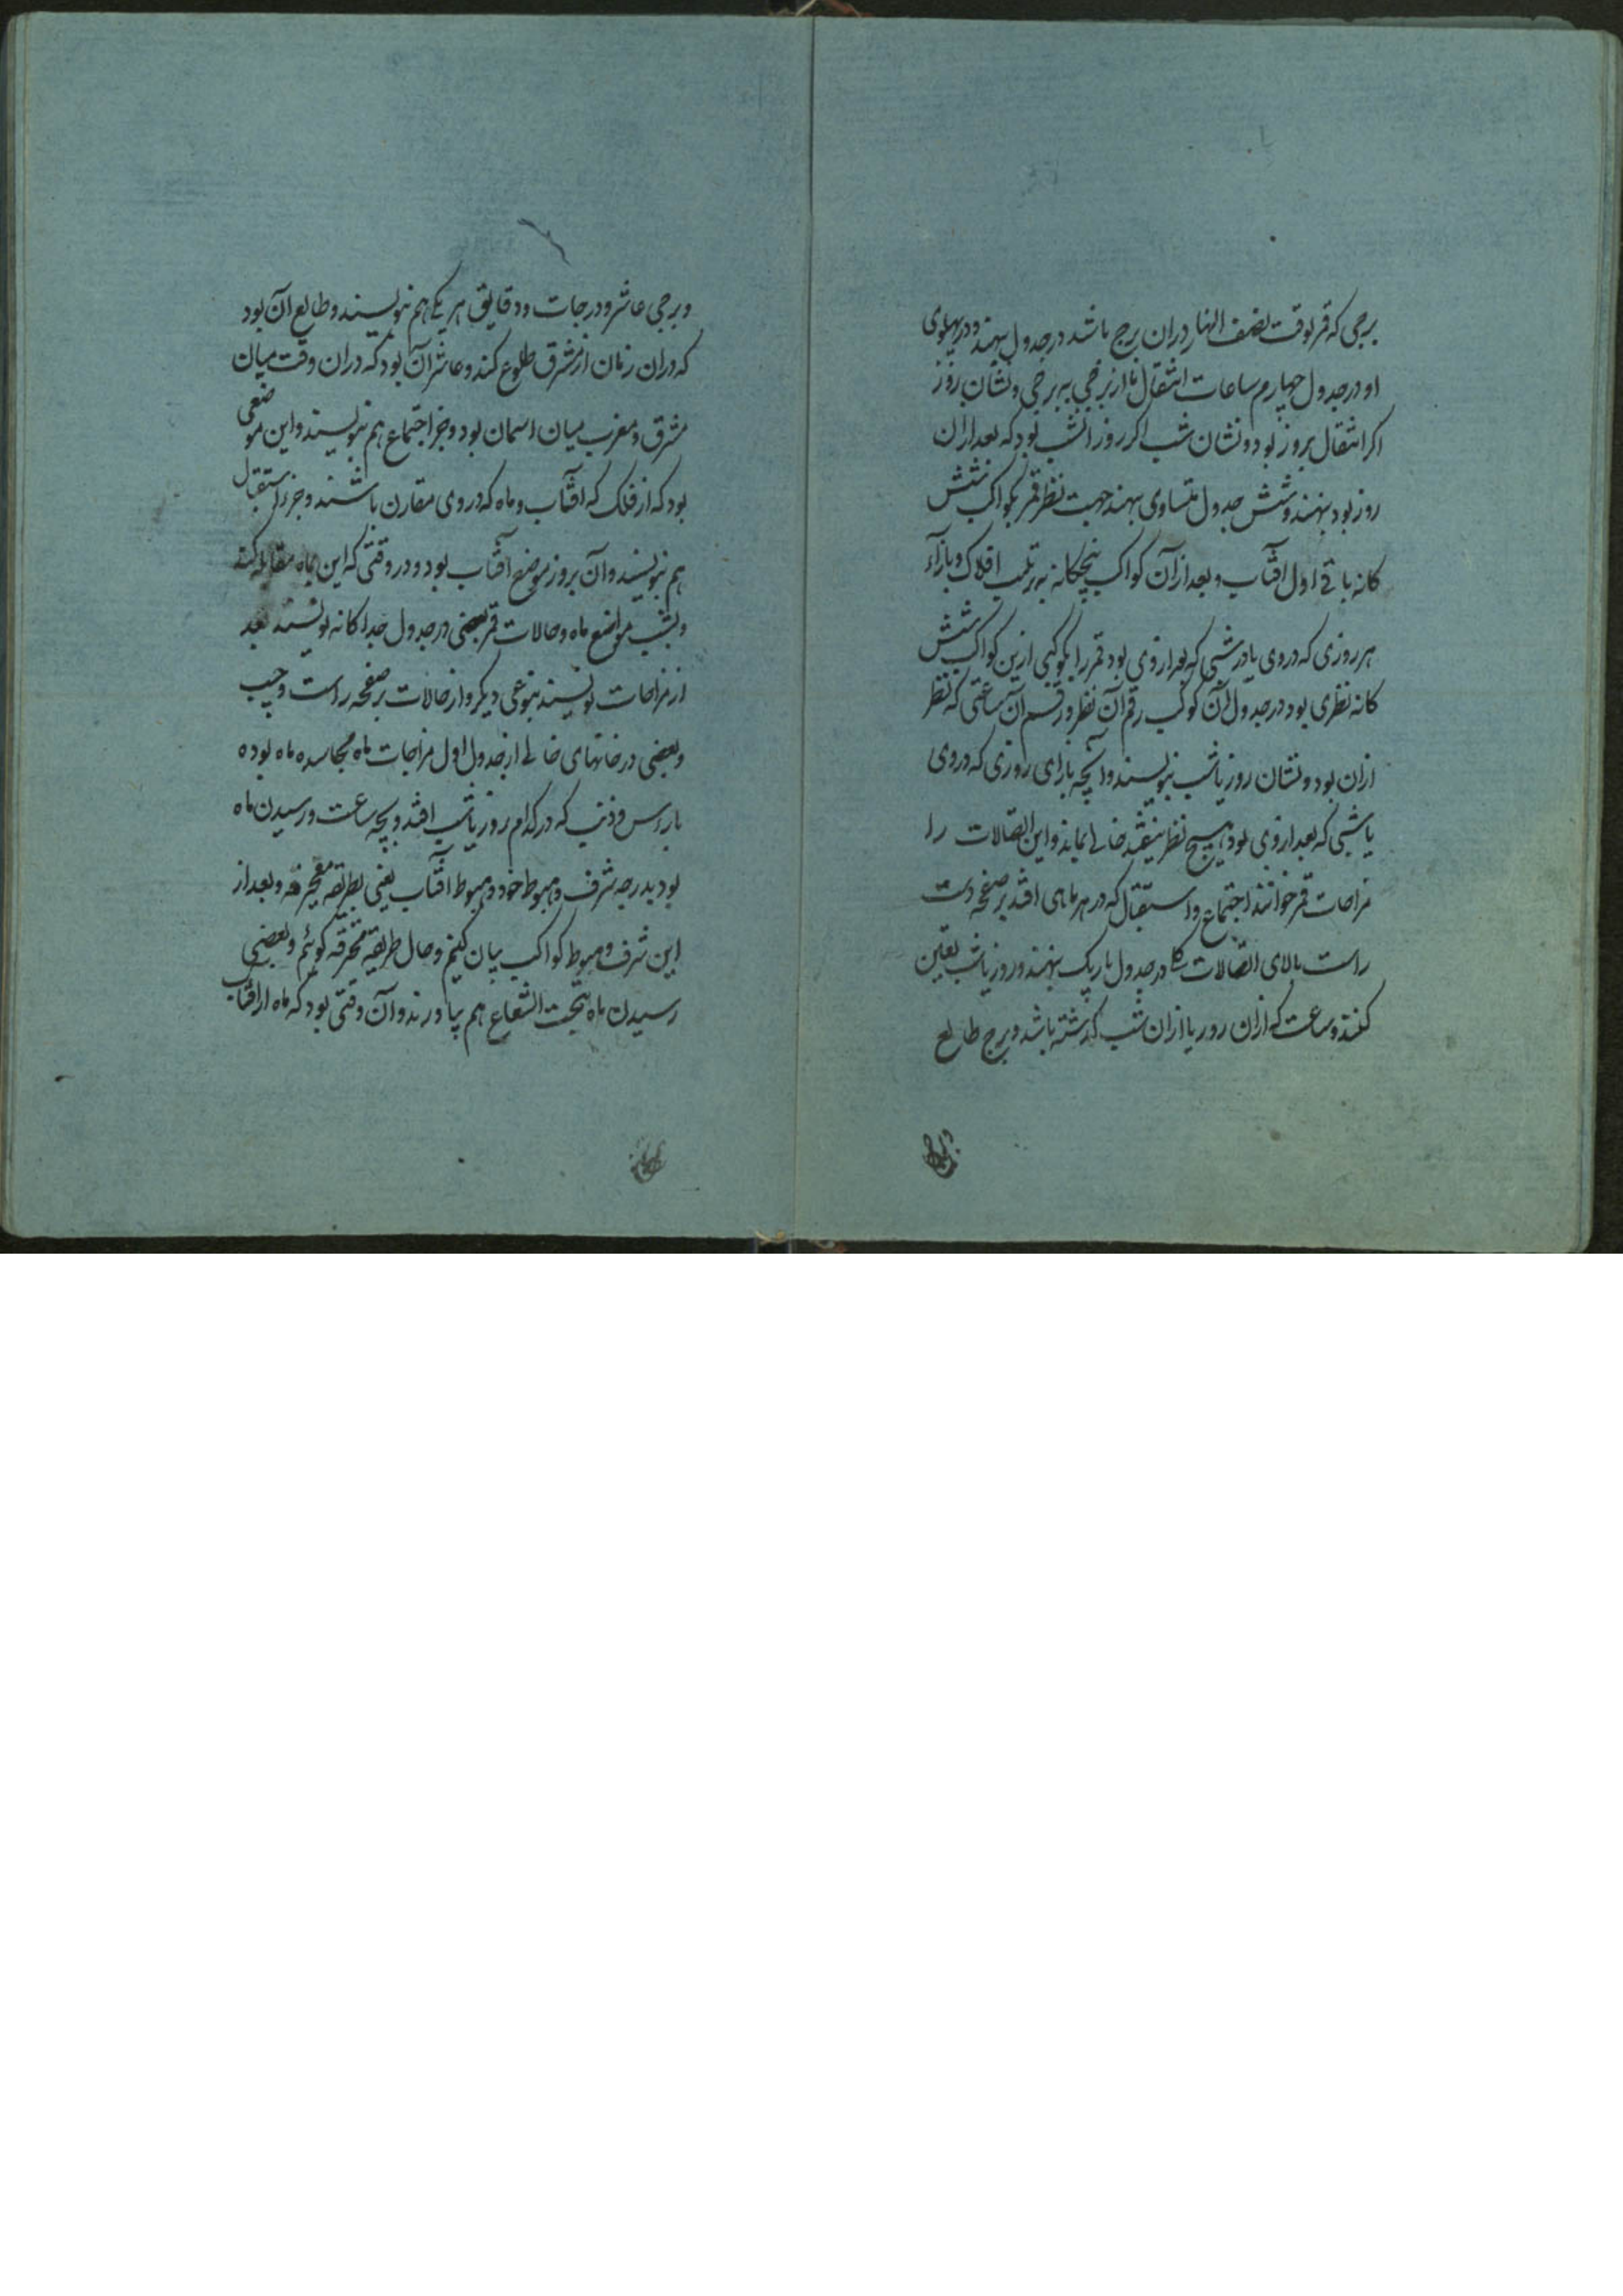 برجی که قمر بوقت نصف النهار دران برج باشد در جدول نهند و در پهلوی
او در جدول چهارم ساعات انتقال ما از برجی به برجی و نشان روز
اکر انتقال بروز بود و نشان شب اکر روز انشب بود که بعد ازان
روز بود نهند و شش جدول متساوی نهند جهت نظر قمر بکواکب شش
کانه باقی اول آفتاب و بعد از آن کواکب پنجکانه به ترتیب افلاک و بازآء
هر روزی که در وی یا در شبی که بعد از وی بود قمر را بکوکبی ازین کواکب شش
کانه نظری بود در جدول آن کوکب رقم آن نظر و رقم آن ساعتی که نظر
ازان بود و نشان روز یا شب بنویسند و آنچه بازای روزی که در وی
یا شبی که بعد از وی بود هیچ نظر نیفتد خالی بماند و این اتصالات را
مزاجات قمر خوانند و اجتماع و استقبال که در هر ماهی افتد بر صفحه دست
راست بالای اتصالات در جدول باریک نهند و روز یا شب تعین
کنند و ساعت که ازان روز یا ازان شب کذشته باشد و برج طالع
و برجی عاشر و درجات و دقایق هر یکی هم بنویسند و طالع آن بود
که دران زمان از مشرق طلوع کند و عاشر آن بود که دران وقت میان
مشرق و مغرب میان اسمان بود و جزء اجتماع هم بنویسند و این موضعی
بود که از فلک که آفتاب و ماه که در وی مقارن باشند و جزء استقبال
هم بنویسند و آن بروز موضع آفتاب بود و در وقتی که این ماه مقابله کند
و بشب مواضع ماه و حالات قمر بعضی در جدول جداکانه نویسند بعد
از مزاجات نویسند بنوعی دیکر و از حالات بر صفحه راست و چپ
و بعضی در خانهای خالی از جدول اول مزاجات ماه مجاسده ماه بود
با راس و ذنب که در کدام روز یا شب افتد و بچه ساعت و رسیدن ماه
بود بدرجه شرف و هبوط خود و هبوط آفتاب یعنی بطریقه و بعد از
این شرف و هبوط کواکب بیان کنیم و حال طریقه محترقه کوئیم و بعضی
رسیدن ماه بتحت الشعاع هم بیاورند و آن وقتی بود که ماه از آفتاب